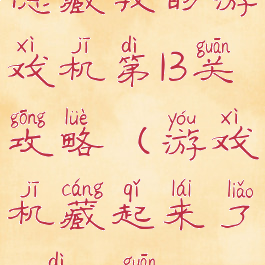 隐藏我的游
xì jī dì guān
戏机第13关
gōng lüè yóu xì
攻略（游戏
jī cáng qǐ lái liǎo
机藏起来了
dì guān